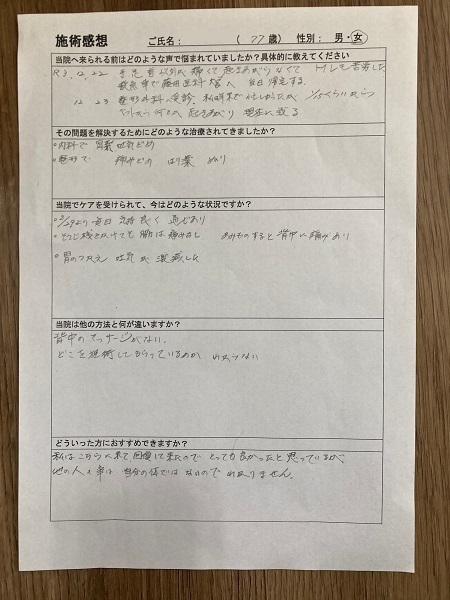 施術感想 ご氏名: (77歳) 性別: 男・女
当院へ来られる前はどのような声で悩まれていましたか?具体的に教えてください
R3.12.22 手足首以外が痛くて起きあがらなくて トイレも苦労した
救急車で 医科大 当日帰宅する
12 23 整形外科 受診、 1/5くらいから
起きあがり 現在に致る
その問題を解決するためにどのような治療されてきましたか?
○内科で 胃薬 吐気どめ
○整形で 痛みどめ はり薬 ぬり
当院でケアを受けられて、今はどのような状況ですか?
より毎日 気持良く 過しおり
○そうじ機をかけても 腕は痛みなし あみものすると背中に痛みあり
○胃のつかえ 吐気が 激減した
当院は他の方法と何が違いますか?
背中のマッサージがない。
どこを施術してもらっているのか わからない
どういった方におすすめできますか?
私はこちらへ来て回復して来たので とっても良かったと思っているが、
他の人の事は 自分の体ではないので わかりません。